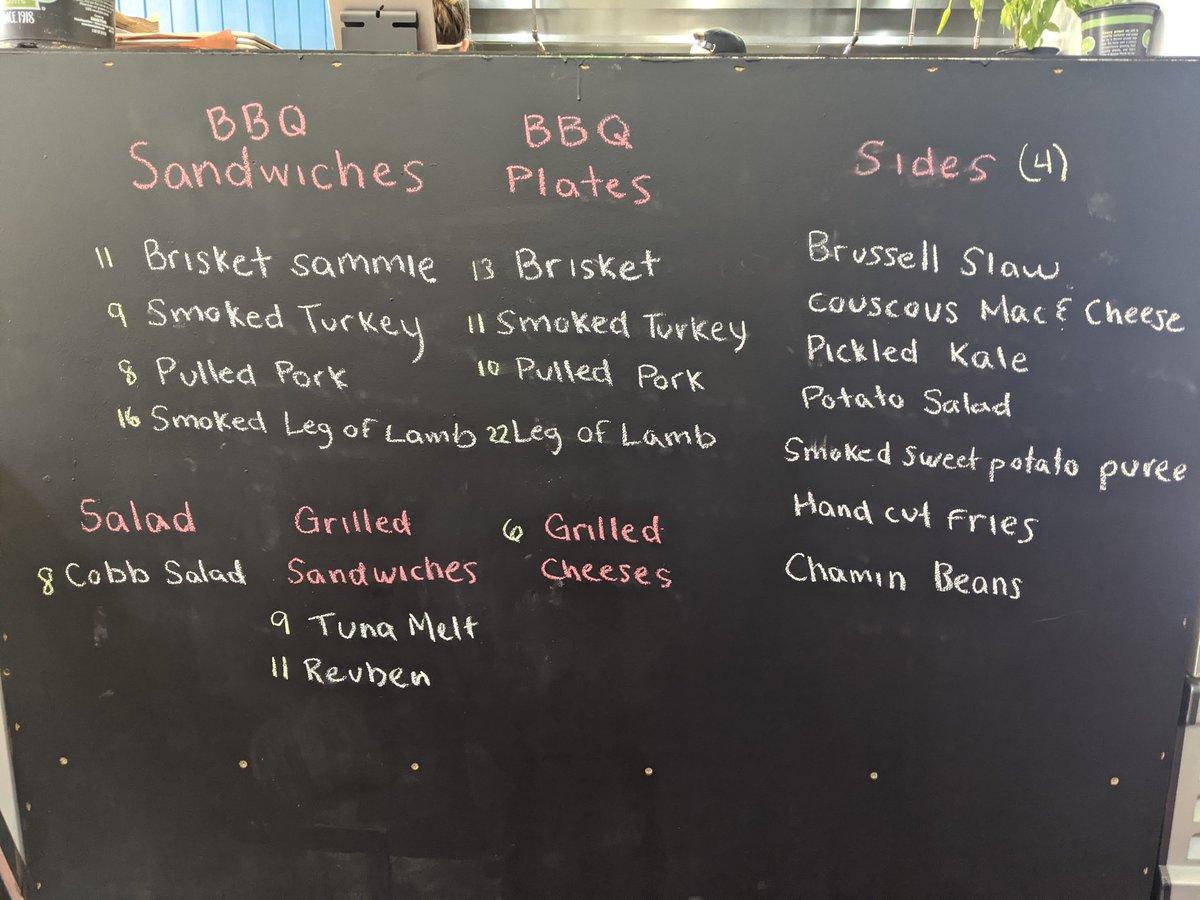 SINCE 1918
BBQ
Sandwiches
11 Brisket sammie
9 Smoked Turkey
8 Pulled Pork
16 Smoked Leg of Lamb
BBQ
Plates
13 Brisket
11 Smoked Turkey
10 Pulled Pork
22 Leg of Lamb
Sides (4)
Brussell Slaw
Couscous Mac & Cheese
Pickled Kale
Potato Salad
Smoked sweet potato puree
Hand cut Fries
Chamin Beans
Salad
8 Cobb Salad
Grilled
Sandwiches
9 Tuna Melt
11 Reuben
6 Grilled
Cheeses